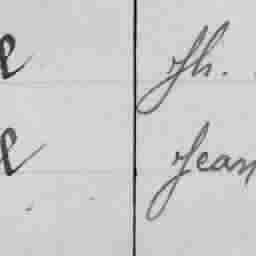 e Jh.
e Jean